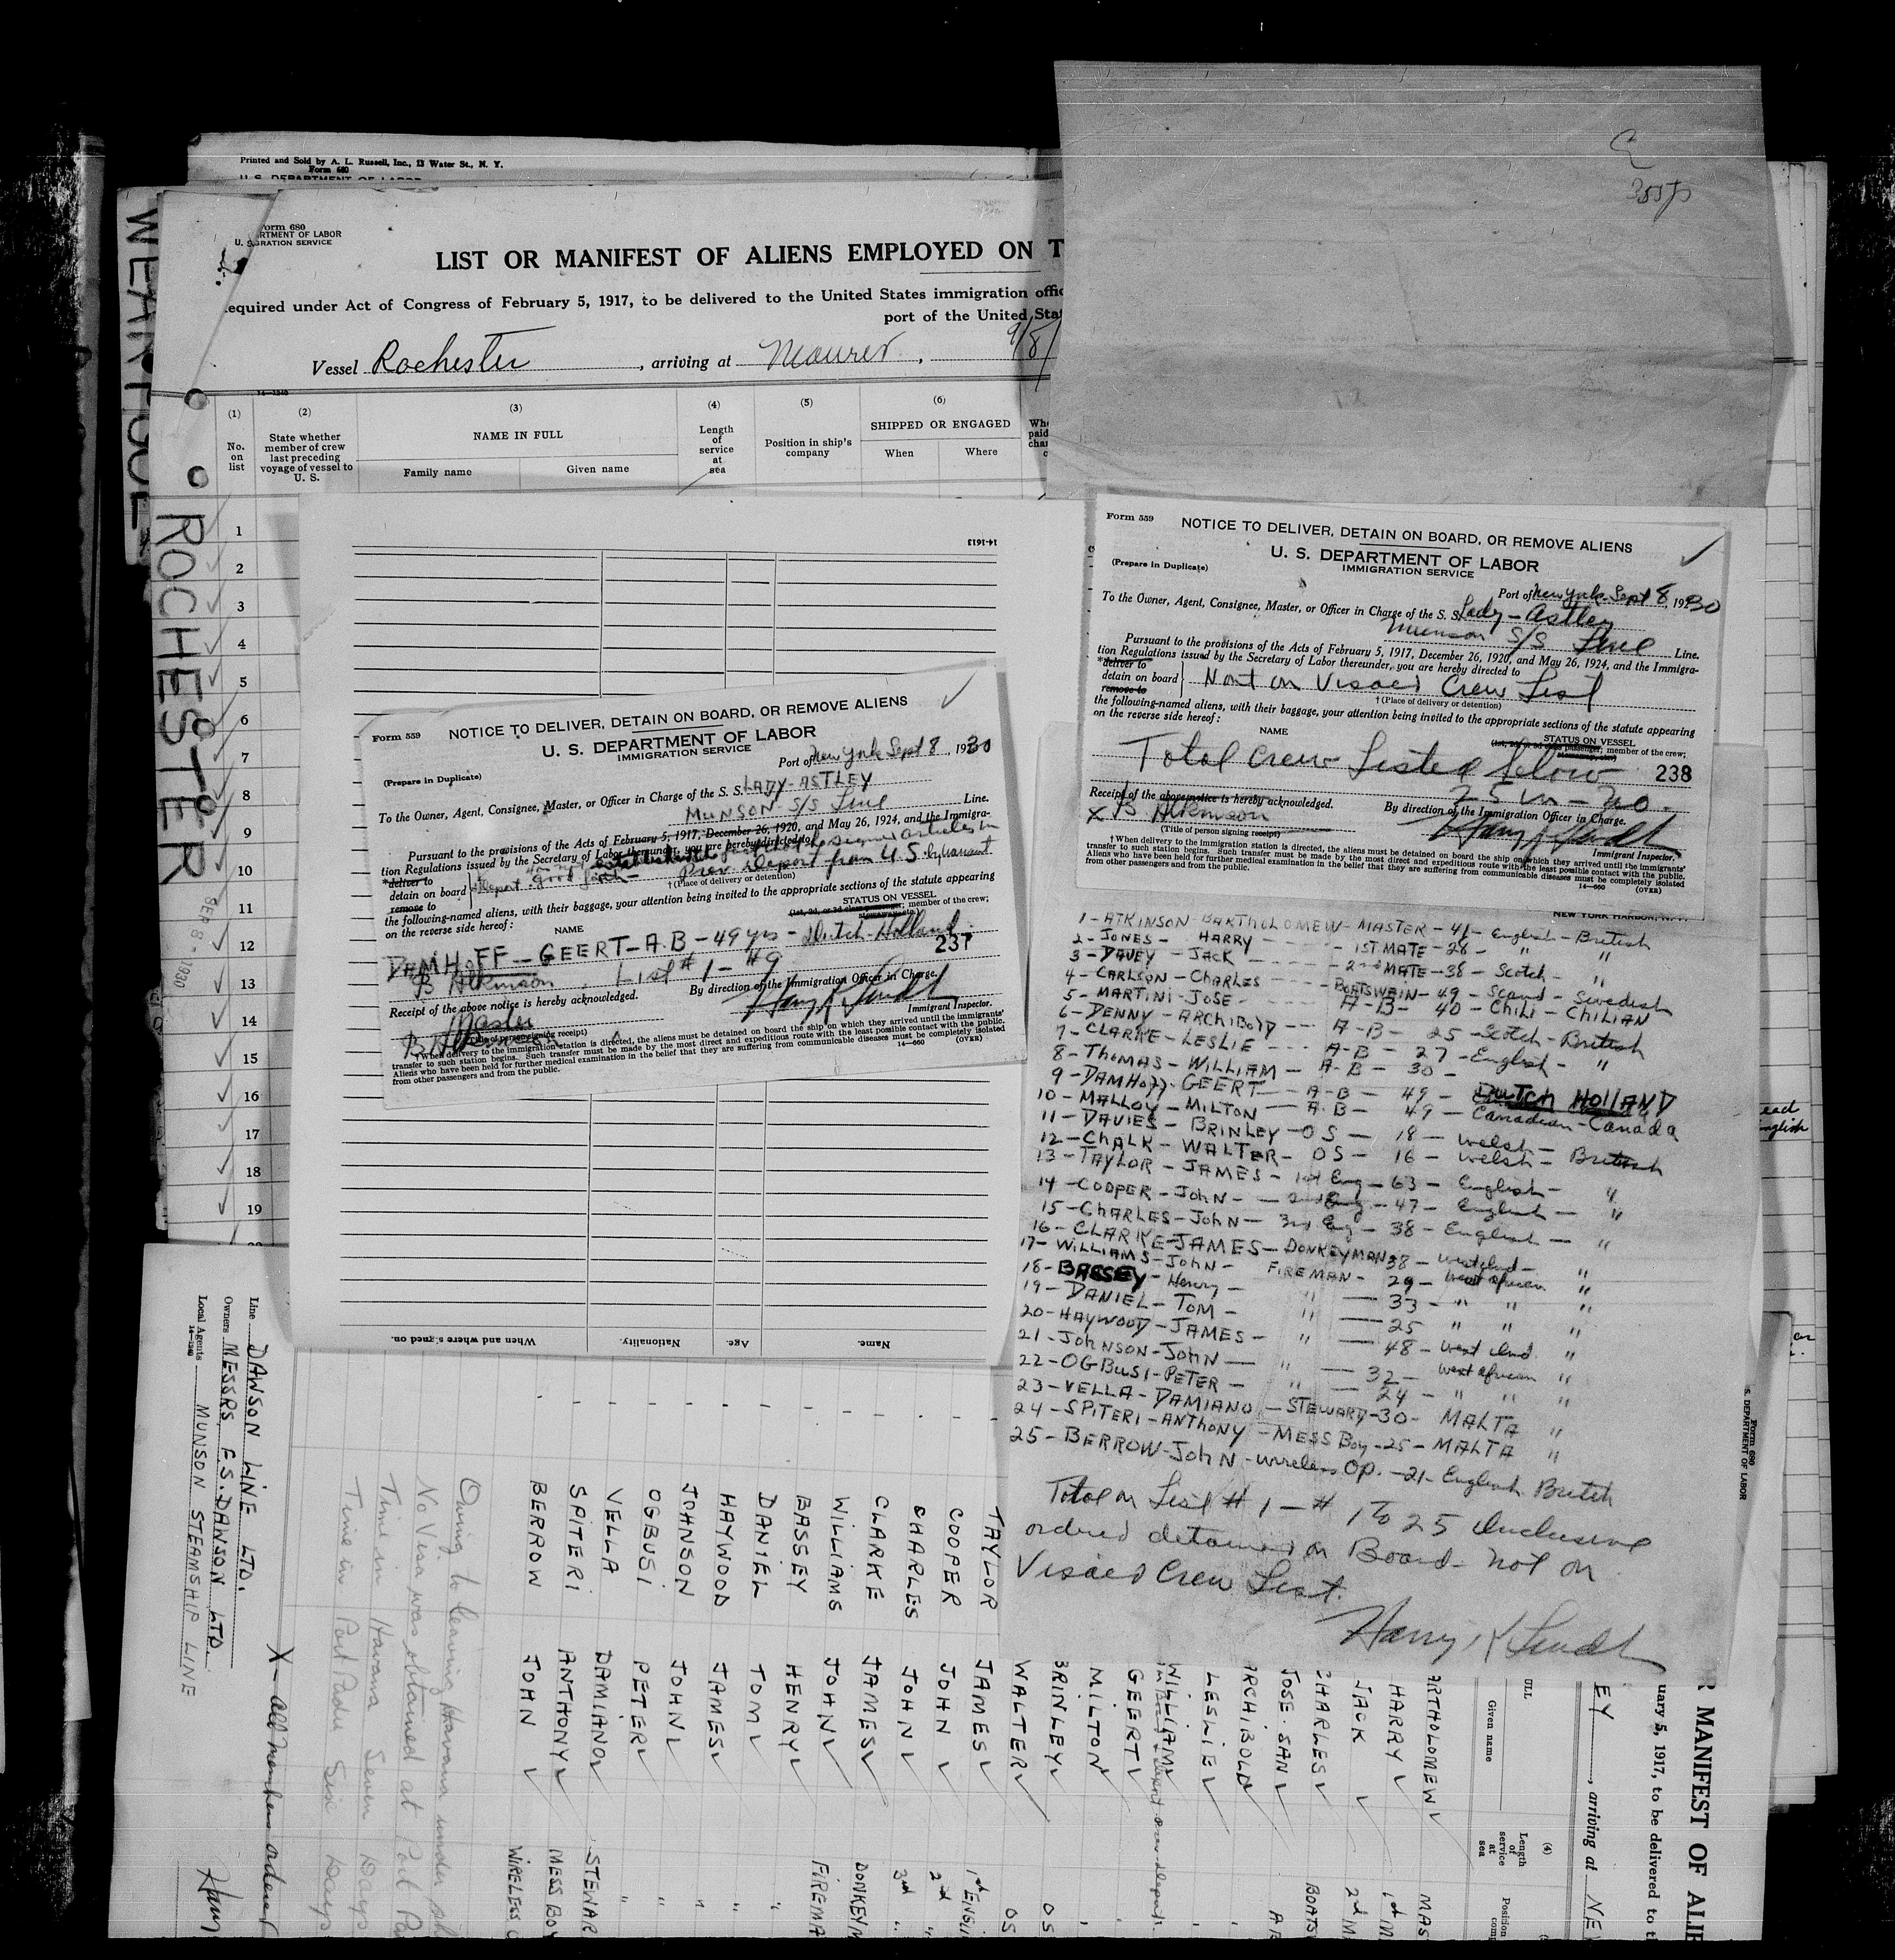 Printed and Sold by A. L. Russell, Inc., 13 Water St., N. Y.
Form 680
U. S. DEPARTMENT OF LABOR
WEAR POOL
ROCHESTER
SEP 8 - 1930
Form 680
U. S.
RTMENT OF LABOR
GRATION SERVICE
LIST OR MANIFEST OF ALIENS EMPLOYED ON T
equired under Act of Congress of February 5, 1917, to be delivered to the United States immigration offic
port of the United Stat
Vessel Rochester, arriving at Maurer, 9/8/
14-1240
(1) (2) (3) (4) (5) (6)
No. on list
State whether member of crew last preceding voyage of vessel to U. S.
NAME IN FULL
Family name Given name
Length of service at sea
Position in ship's company
SHIPPED OR ENGAGED
When Where
1
2
3
4
5
6
7
8
9
10
11
12
13
14
15
16
17
18
19
14-1613
Name. Age. Nationality. When and where signed on.
Form 559
NOTICE TO DELIVER, DETAIN ON BOARD, OR REMOVE ALIENS
U. S. DEPARTMENT OF LABOR
IMMIGRATION SERVICE
(Prepare in Duplicate)
Port of New York Sept 8, 1930
To the Owner, Agent, Consignee, Master, or Officer in Charge of the S. S. LADY-ASTLEY
MUNSON S/S Line Line.
Pursuant to the provisions of the Acts of February 5, 1917, December 26, 1920, and May 26, 1924, and the Immigra-
tion Regulations issued by the Secretary of Labor thereunder, you are hereby directed to
*deliver to
detain on board
remove to
good faith - Prev. Deport from U.S. by warrant
† (Place of delivery or detention)
the following-named aliens, with their baggage, your attention being invited to the appropriate sections of the statute appearing
on the reverse side hereof:
NAME
STATUS ON VESSEL
(1st, 2d, or 3d class passenger; member of the crew;
stowaway, etc.)
DAMHOFF - GEERT - A.B - 49 yrs - Dutch - Holland
237
B Atkinson List # 1 - #9
Receipt of the above notice is hereby acknowledged.
By direction of the Immigration Officer in Charge.
Harry
Master
(Title of person signing receipt)
Immigrant Inspector.
B Atkinson
† When delivery to the immigration station is directed, the aliens must be detained on board the ship on which they arrived until the immigrants'
transfer to such station begins. Such transfer must be made by the most direct and expeditious route with the least possible contact with the public.
Aliens who have been held for further medical examination in the belief that they are suffering from communicable diseases must be completely isolated
from other passengers and from the public.
14-660 (OVER)
Form 559
NOTICE TO DELIVER, DETAIN ON BOARD, OR REMOVE ALIENS
U. S. DEPARTMENT OF LABOR
IMMIGRATION SERVICE
(Prepare in Duplicate)
Port of New York Sept 8, 1930
To the Owner, Agent, Consignee, Master, or Officer in Charge of the S. S. Lady-Astley
Munson S/S Line Line.
Pursuant to the provisions of the Acts of February 5, 1917, December 26, 1920, and May 26, 1924, and the Immigra-
tion Regulations issued by the Secretary of Labor thereunder, you are hereby directed to
*deliver to
detain on board
remove to
Not on Visaed Crew List
† (Place of delivery or detention)
the following-named aliens, with their baggage, your attention being invited to the appropriate sections of the statute appearing
on the reverse side hereof:
NAME
STATUS ON VESSEL
(1st, 2d, or 3d class passenger; member of the crew;
stowaway, etc.)
Total Crew Listed below
238
25 in - no.
Receipt of the above notice is hereby acknowledged.
By direction of the Immigration Officer in Charge.
X B Atkinson
(Title of person signing receipt)
Harry
Immigrant Inspector.
† When delivery to the immigration station is directed, the aliens must be detained on board the ship on which they arrived until the immigrants'
transfer to such station begins. Such transfer must be made by the most direct and expeditious route with the least possible contact with the public.
Aliens who have been held for further medical examination in the belief that they are suffering from communicable diseases must be completely isolated
from other passengers and from the public.
14-660 (OVER)
NEW YORK HARBOR, N.Y.
1 - ATKINSON - BARTHOLOMEW - MASTER - 41 - English - British
2 - JONES - HARRY - 1ST MATE - 28 - " "
3 - DAVEY - JACK - 2nd MATE - 38 - Scotch - "
4 - CARLSON - CHARLES - BOATSWEIN - 49 - Scand - Swedish
5 - MARTINI - JOSE - A-B - 40 - CHILI - CHILIAN
6 - DENNY - ARCHIBOLD - A-B - 25 - Scotch - British
7 - CLARKE - LESLIE - A-B - 27 - English - "
8 - THOMAS - WILLIAM - A-B - 30 -
9 - DAMHOFF - GEERT - A-B - 49 - DUTCH HOLLAND
10 - MALLOY - MILTON - A-B - 49 - Canadian - Canada
11 - DAVIES - BRINLEY - OS - 18 - Welsh -
12 - CHALK - WALTER - OS - 16 - Welsh - British
13 - TAYLOR - JAMES - 1st Eng - 63 - English - "
14 - COOPER - JOHN - 2nd Eng - 47 - English - "
15 - CHARLES - JOHN - 3rd Eng - 38 - English - "
16 - CLARKE - JAMES - DONKEYMAN - 38 - West Ind - "
17 - WILLIAMS - JOHN - FIREMAN - 29 - West African "
18 - BASSEY - Henry - " - 33 - " " "
19 - DANIEL - TOM - " - 25 " " "
20 - HAYWOOD - JAMES - " - 48 - West Ind. "
21 - JOHNSON - JOHN - " - 32 - West African "
22 - OGBUSI - PETER - " - 24 - " " "
23 - VELLA - DAMIANO - STEWARD - 30 - MALTA "
24 - SPITERI - ANTHONY - MESS Boy - 25 - MALTA "
25 - BERROW - JOHN - wireless Op. - 21 - English British
Total on List # 1 - # 1 to 25 inclusive
ordered detained on Board - not on
Visaed Crew List.
Harry
Line DAWSON LINE LTD.
Owners MESSRS F.S. DAWSON LTD.
Local Agents MUNSON STEAMSHIP LINE
14-1240
R MANIFEST OF ALIE
uary 5, 1917, to be delivered to t
EY, arriving at NE
Form 680
S. DEPARTMENT OF LABOR
ULL
Given name
(4)
Length of service at sea
Position
comp
ARTHOLOMEW MAS
HARRY 1st M
JACK 2nd M
CHARLES BOATS
JOSE. SAN A
ARCHIBOLD
LESLIE
WILLIAM
GEERT
MILTON
BRINLEY OS
WALTER OS
TAYLOR JAMES 1st ENGI
COOPER JOHN 2nd "
CHARLES JOHN 3rd "
CLARKE JAMES DONKEYM
WILLIAMS JOHN FIREMA
BASSEY HENRY "
DANIEL TOM "
HAYWOOD JAMES "
JOHNSON JOHN "
OGBUSI PETER "
VELLA DAMIANO STEWAR
SPITERI ANTHONY MESS BOY
BERROW JOHN WIRELESS O
Owing to leaving Havana under
No Visa was obtained at Port Pa
Time in Havana Seven Days
Time in Port Padre Six Days
X - All members